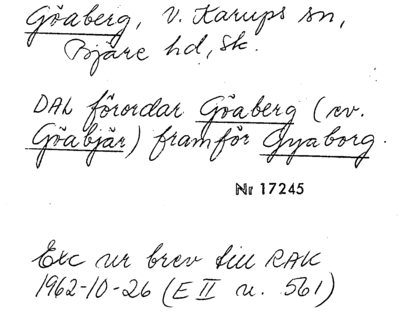 Göaberg, V. Karups sn,
Bjäre hd, Sk.
DAL förordar Göaberg (ev.
Göabjär) framför Gyaborg.
Nr 17245
Exc ur brev till RAK
1962-10-26 (E II u. 561)